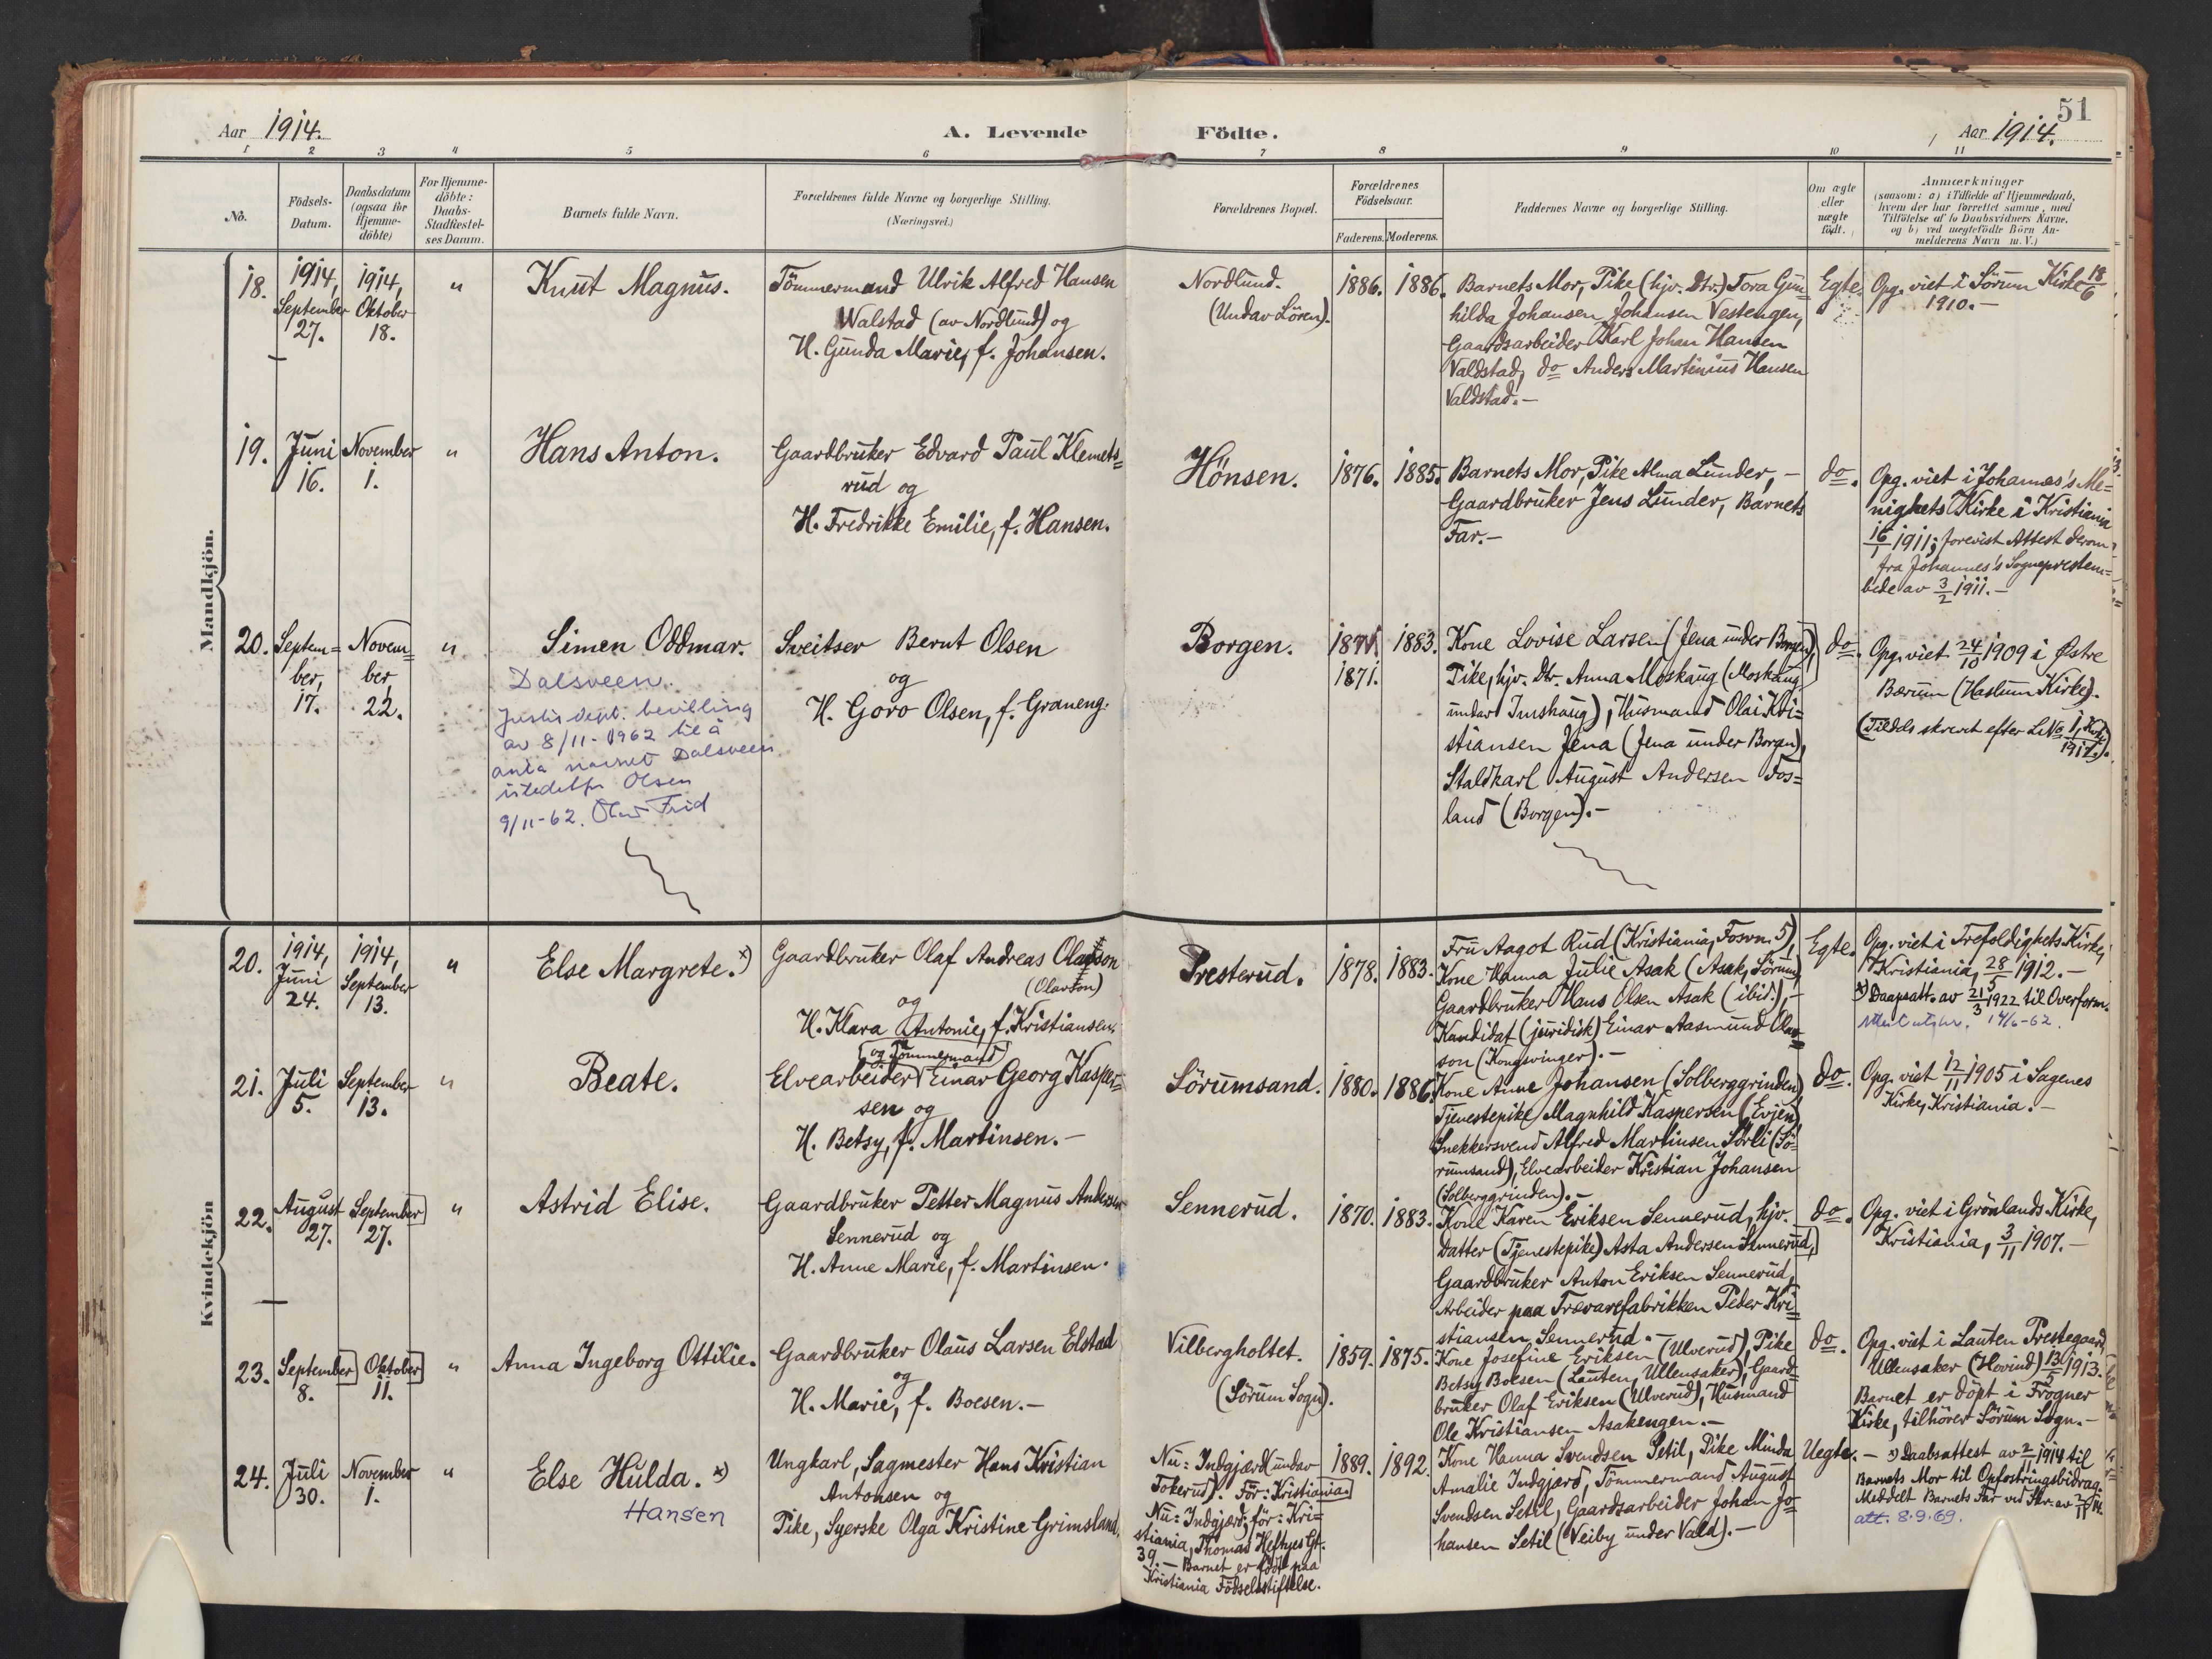 51
Aar 1914.
A. Levende Födte.
Aar 1914.
1 2 3 4 5 6 7 8 9 10 11
No.
Födsels-
Datum.
Daabsdatum
(ogsaa for
Hjemme-
döbte)
For Hjemme-
döbte:
Daabs-
Stadfæstel-
ses Datum.
Barnets fulde Navn.
Forældrenes fulde Navne og borgerlige Stilling.
(Næringsvei.)
Forældrenes Bopæl.
Forældrenes
Födselsaar.
Faderens. Moderens.
Faddernes Navne og borgerlige Stilling.
Om ægte
eller
uægte
födt.
Anmærkninger
(saasom: a) i Tilfælde af Hjemmedaab,
hvem der har forrettet samme, med
Tilföielse af to Daabsvidners Navne,
og b) ved uægtefödte Börn An-
melderens Navn m. V.)
Mandkjön.
18.
1914,
September
27.
1914,
Oktober
18.
"
Knut Magnus.
Tömmermand Ulrik Alfred Hansen
Walstad (av Nordlund) og
H. Gunda Marie, f. Johansen.
Nordlund.
(Undav Lören).
1886. 1886.
Barnets Mor, Pike (hjv. Dtr.) Tora Gun=
hilda Johansen Johansen Vestengen,
Gaardsarbeider Karl Johan Hansen
Valdstad, do Anders Martinius Hansen
Valdstad.-
Egte.
Opg. viet i Sörum Kirke 18/6
1910.-
19.
Juni
16.
November
1.
"
Hans Anton.
Gaardbruker Edvard Paul Klemets=
rud og
H. Fredrikke Emilie, f. Hansen.
Hönsen.
1876. 1885.
Barnets Mor, Pike Alma Lunder, -
Gaardbruker Jens Lunder, Barnets
Far.-
do.
Opg. viet i Johannes's Me=
nighets Kirke i Kristiania
16/1 1911; forevist Attest derom
fra Johannes's Sogneprestem=
bede av 3/2 1911.-
20.
Septem=
ber,
17.
Novem=
ber,
22.
"
Simen Oddmar.
Dalsveen.
Justis dept. bevilling
av 8/11-1962 til å
anta navnet Dalsveen
istedetfor Olsen
9/11-62. Olav Frid
Sveitser Bernt Olsen
og
H. Goro Olsen, f. Graneng.
Borgen.
1871.
1883.
Kone Lovise Larsen (Jena under Borgen),
Pike, hjv. Dtr. Anna Moskaug (Moskaug
undar Imshaug), Husmand Olai Kri=
stiansen Jena (Jena under Borgen),
Staldkarl August Andersen Fos=
land (Borgen).-
do.
Opg. viet 24/10 1909 i Østre
Bærum (Haslum Kirke).
Kvindekjön
20.
1914,
Juni
24.
1914,
September
13.
"
Else Margrete. x)
Gaardbruker Olaf Andreas Olafson
(Olavson)
og
H. Klara Antonie, f. Kristiansen.
Presterud.
1878. 1883.
Fru Aagot Rud (Kristiania, Fosvn. 5),
Kone Hanna Julie Asak (Asak, Sörum),
Gaardbruker Hans Olsen Asak (ibid.), -
Kandidat (juridisk) Einar Aasmund Olav=
son (Kongsvinger).-
Egte.
Opg. viet i Trefoldighets Kirke,
Kristiania, 28/5 1912.-
x) Daapsatt. av 21/3 1922 til Overform.
14/6-62.
21.
Juli
5.
September
13.
"
Beate.
og Tömmermand
Elvearbeider Einar Georg Kasper=
sen og
H. Betsy, f. Martinsen.-
Sörumsand.
1880. 1886.
Kone Anne Johansen (Solberggrinden)
Tjenestepike Magnhild Kaspersen (Evjen)
Snekkersvend Alfred Martinsen Sörli (Sö=
rumsand), Elvearbeider Kristian Johansen
(Solberggrinden).-
do.
Opg. viet 12/11 1905 i Sagenes
Kirke, Kristiania.-
22.
August
27.
September
27.
"
Astrid Elise.
Gaardbruker Petter Magnus Andersen
Sennerud og
H. Anne Marie, f. Martinsen.
Sennerud.
1870. 1883.
Kone Karen Eriksen Sennerud, hjv.
Datter (Tjenestepike) Asta Andersen Sennerud,
Gaardbruker Anton Eriksen Sennerud,
Arbeider paa Trævarefabrikken Peder Kri=
stiansen Sennerud.-
do.
Opg. viet i Grönlands Kirke,
Kristiania, 3/11 1907.-
23.
September
8.
Oktober
11.
"
Anna Ingeborg Ottilie.
Gaardbruker Olaus Larsen Elstad
og
H. Marie, f. Boesen.-
Vilbergholtet.
(Sörum Sogn).
1859. 1875.
Kone Josefine Eriksen (Ulverud), Pike
Betsy Boesen (Lauten, Ullensaker), Gaard=
bruker Olaf Eriksen (Ulverud), Husmand
Ole Kristiansen Asakengen.-
do.
Opg. viet i Lauten Prestegaard,
Ullensaker (Hovind) 13/5 1913.
Barnet er döpt i Frogner
Kirke, tilhörer Sörum Sogn.-
24.
Juli
30.
November
1.
"
Else Hulda. x)
Hansen
Ungkarl, Sagmester Hans Kristian
Antonsen og
Pike, Syerske Olga Kristine Grimsland.
Nu: Indgjærd (undav
Tokerud). För: Kristiania.
Nu: Indgjærd; för: Kri=
stiania, Thomas Heftyes Gt.
39.- Barnet er födt paa
Kristiania Födselsstiftelse.
1889. 1892.
Kone Hanna Svendsen Setil, Pike Minda
Amalie Indgjærd, Tömmermand August
Svendsen Setil, Gaardsarbeider Johan Jo=
hansen Setil (Veiby under Vald).-
Uegte.
- x) Daabsattest av 2/11 1914 til
Barnets Mor til Opfostringsbidrag.
Meddelt Barnets Far ved Skr. av 2/11 14.
att. 8.9.69.